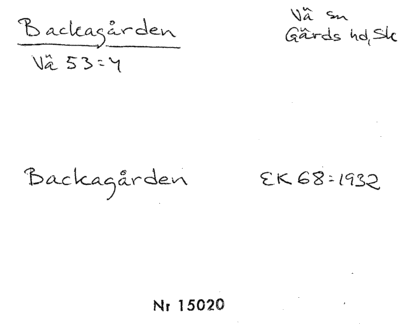 Backagården
Vä 53:4
Vä sn
Gärds hd, Sk
Backagården EK 68:1932
Nr 15020